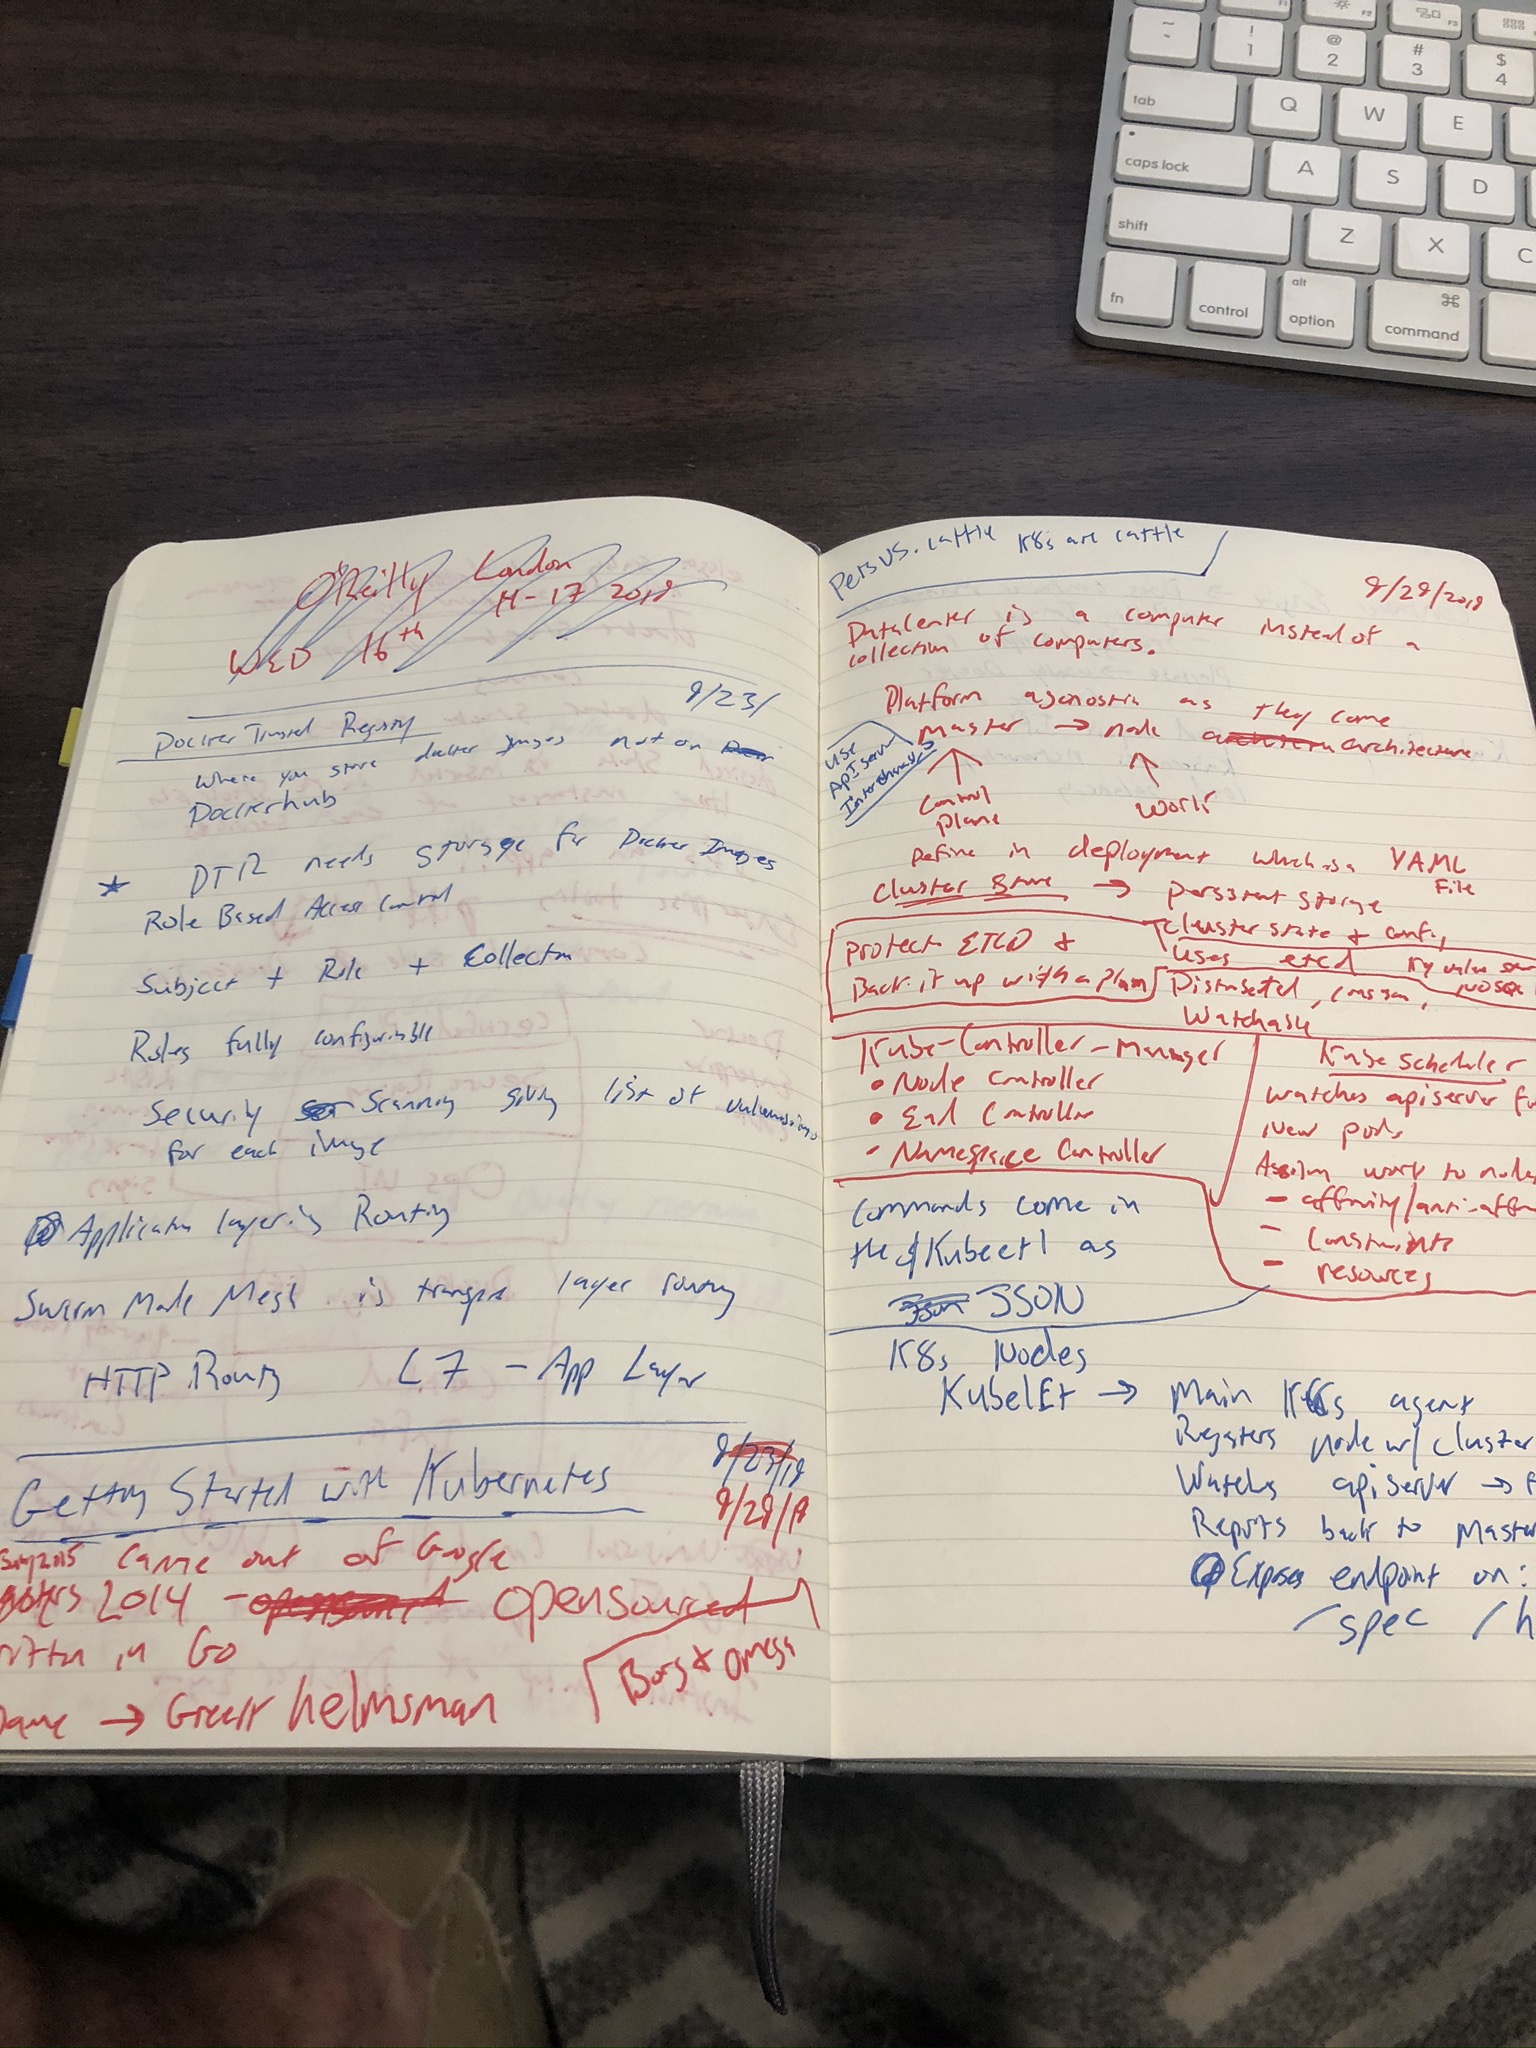 ~
!
1
@
2
#
3
$
4
F2
F3
tab
Q
W
E
caps lock
A
S
D
shift
Z
X
C
fn
control
alt
option
⌘
command
O'Reilly London
14-17 2018
WED 16th
8/23/
Docker Trusted Registry
Where you store docker images not on
Dockerhub
★ DTR needs storage for Docker Images
Role Based Access Control
Subject + Role + Collection
Roles fully configurable
Security Scanning giving list of
for each image
Application layering Routing
Swarm Mode Mesh is transport layer routing
HTTP Routing L7 - App Layer
Getting Started with Kubernetes
8/23/18
8/28/18
2015 came out of Google
2014 - opensourced
in Go
Borg & Omega
→ Great helmsman
Pets vs. cattle K8s are cattle
8/28/2018
Datacenter is a computer instead of a
collection of computers.
Platform agnostic as they come
Master → node architecture
Use
API server
Control
plane
work
Define in deployment which is a YAML
File
Cluster Store → persistent storage
cluster state & config
uses etcd
Protect ETCD &
Back it up with a plan
Distributed,
Watchable
Kube-Controller-Manager
• Node Controller
• End Controller
- Namespace Controller
Kube scheduler
watches apiserver
New pods
Assign work to nodes
- affinity/anti-aff
- constraints
- resources
Commands come in
the Kubectl as
JSON
K8s Nodes
KubelEt → Main K8s agent
Registers node w/ cluster
Watches apiserver →
Reports back to Master
Exposes endpoint on:
/spec /h